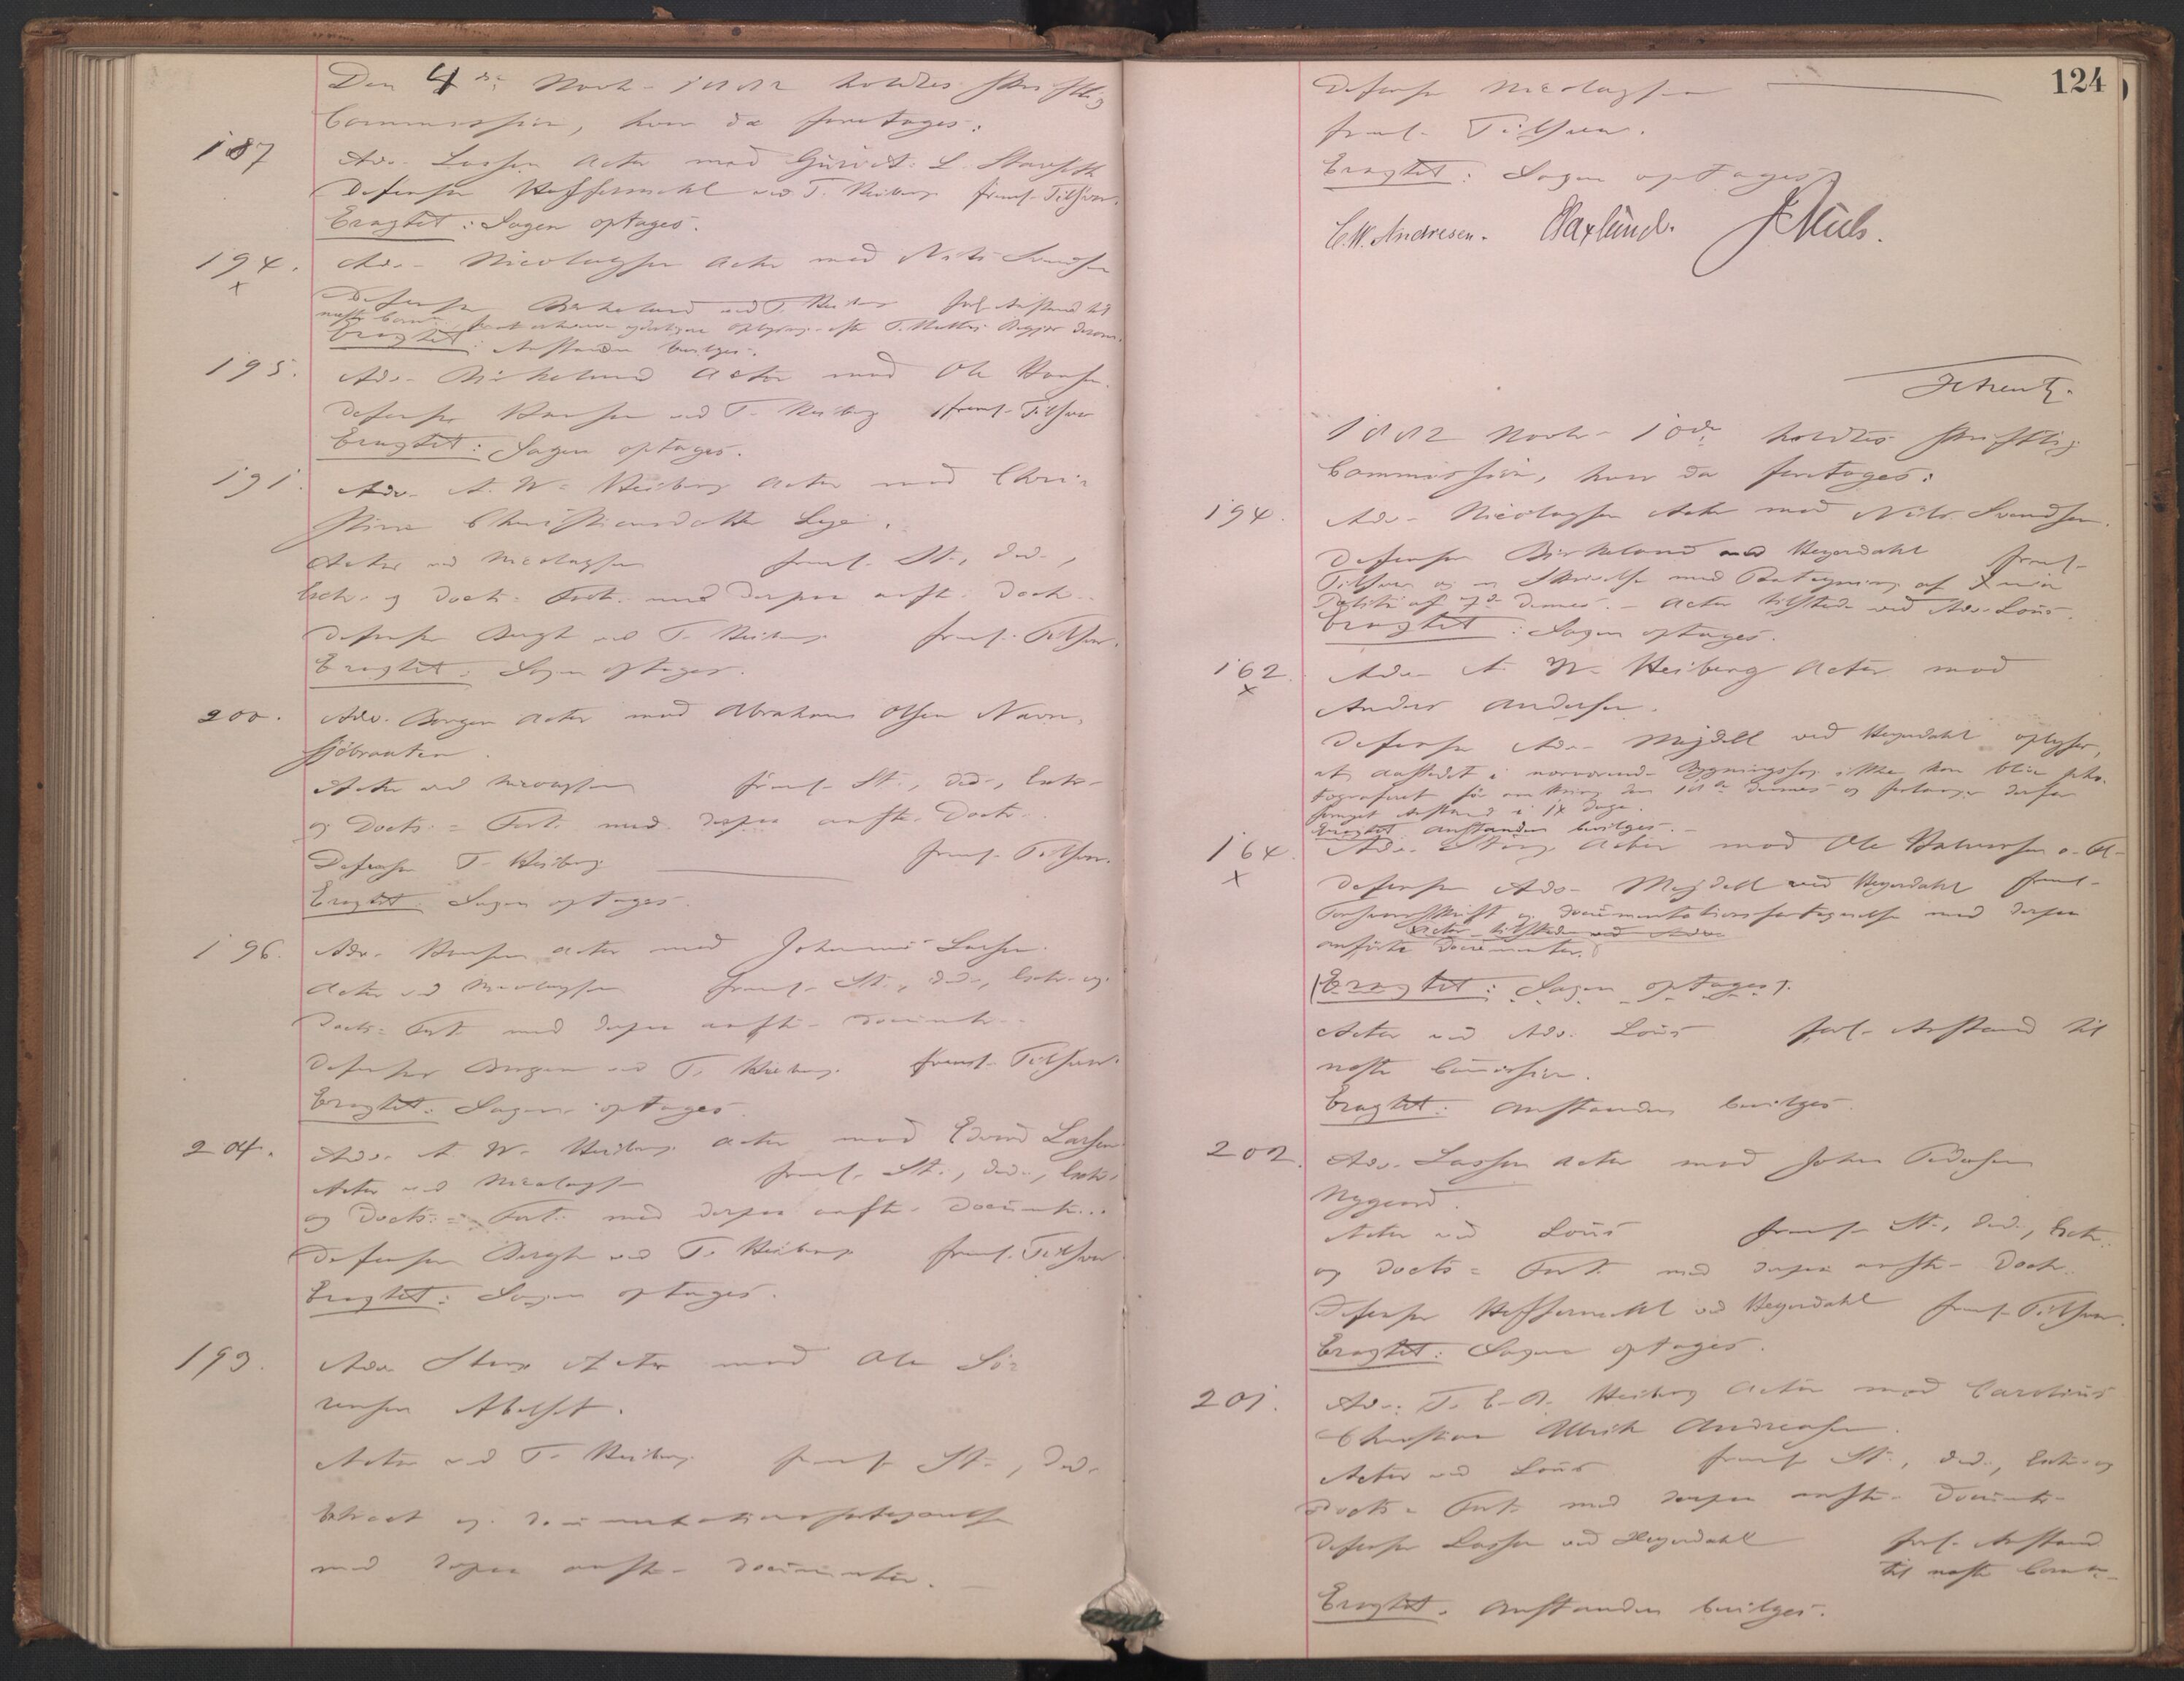 Den 4de Novbr. 1882 holdtes skriftlig
Commission, hvor da foretages:
187
Adv. Lassen Actor mod Guri A. L.
Defensor Hoffermehl ved T. Heiberg freml. Tilsvar.
Eragtet: Sagen optages.
194.
x
Adv. Nicolaysen Actor mod Nils Svendsen
Defensor Birkeland ved T. Heiberg forl. Anstand til
næste Comm. for at erhverve yderligere Oplysning efter T. Begjær desom.
Eragtet: Anstanden bevilges.
195.
Adv. Birkeland Actor mod Ole Hansen.
Defensor Hansen ved T. Heiberg freml. Tilsvar
Eragtet: Sagen optages.
191.
Adv. A. W. Heiberg Actor mod Chri-
stine Christiansdatter Lye.
Actor ved Nicolaysen freml. St., Ded.,
Extr. og Docts. Fort. med derpaa anft. Doctr.
Defensor Bergh ved T. Heiberg freml. Tilsvar.
Eragtet: Sagen optages.
200.
Adv. Borgen Actor mod Abraham Olsen Navn-
sjøbraaten.
Actor ved Nicolaysen freml. St., Ded., Extr.
og Docts. = Fort. med derpaa anfte. Doctr.
Defensor T. Heiberg freml. Tilsvar.
Eragtet: Sagen optages.
196.
Adv. Hansen Actor mod Johannes Larsen.
Actor ved Nicolaysen freml. St., Ded., Extr. og
Docts = Fort. med derpaa anfte. Documtr.
Defensor Borgen ved T. Heiberg freml. Tilsvar.
Eragtet: Sagen optages.
204.
Adv. A. W. Heiberg Actor mod Edvard Larsen
Actor ved Nicolaysen freml. St., Ded., Extr.
og Docts. = Fort. med derpaa anfte. Documtr.
Defensor Bergh ved T. Heiberg freml. Tilsvar
Eragtet: Sagen optages.
193.
Adv. Stang Actor mod Ole Sö-
rensen Abelset.
Actor ved T. Heiberg freml. St., Ded.
Extract og documentationsfortegnelse
med derpaa anfte. Documenter.
124
Defensor Nicolaysen
freml. Tilsvar.
Eragtet: Sagen optages.
C. M. Andresen.

1882 Novbr. 10de holdtes skriftlig
Commission, hvor da foretages:
194.
Adv. Nicolaysen Actor mod Nils Svendsen.
Defensor Birkeland ved Heyerdahl freml.
Tilsvar og en Skrivelse med Paategning af Xania
Politi af 7de dennes. Actor tilstede ved Adv. Lous.
Eragtet: Sagen optages.
162.
x
Adv. A. W. Heiberg Actor mod
Anders Andersen.
Defensor Adv. Mejdell ved Heyerdahl oplyser,
at Aastedet i nærværende Bygningssag ikke kan blive pho-
tograferet før omkring den 18de dennes og forlanger derfor
fornyet Anstand i 14 Dage.
Eragtet: Anstanden bevilges.
164.
x
Adv. Stang Actor mod Ole Halvorsen o. fl.
Defensor Adv. Mejdell ved Heyerdahl freml.
Forsvarsskrift og documentationsfortegnelse med derpaa
Actor tilstede ved Adv.
anførte Documenter.
(Eragtet: Sagen optages).
Actor ved Adv. Lous forl. Anstand til
næste Commission.
Eragtet: Anstanden bevilges.
202.
Adv. Lassen Actor mod Johan Pedersen
Nygaard.
Actor ved Lous freml. St., Ded., Extr.
og Docts = Fort. med derpaa anfte. Doctr.
Defensor Hoffermehl ved Heyerdahl freml. Tilsvar.
Eragtet: Sagen optages.
201.
Adv. T. C. A. Heiberg Actor mod Carolius
Christian Ulrik Andreasen.
Actor ved Lous freml. St., Ded., Extr. og
Docts = Fort. med derpaa anfte. Documtr.
Defensor Lassen ved Heyerdahl forl. Anstand
til næste Comm.
Eragtet: Anstanden bevilges.